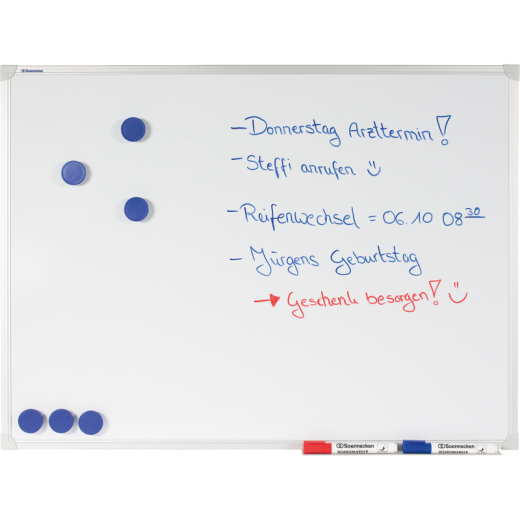 Soennecken
– Donnerstag Arzttermin!
– Steffi anrufen ☺
– Reifenwechsel = 06.10 08 30
– Jürgens Geburtstag
→ Geschenk besorgen! ☺
Soennecken
BOARDMARKER
Soennecken
BOARDMARKER